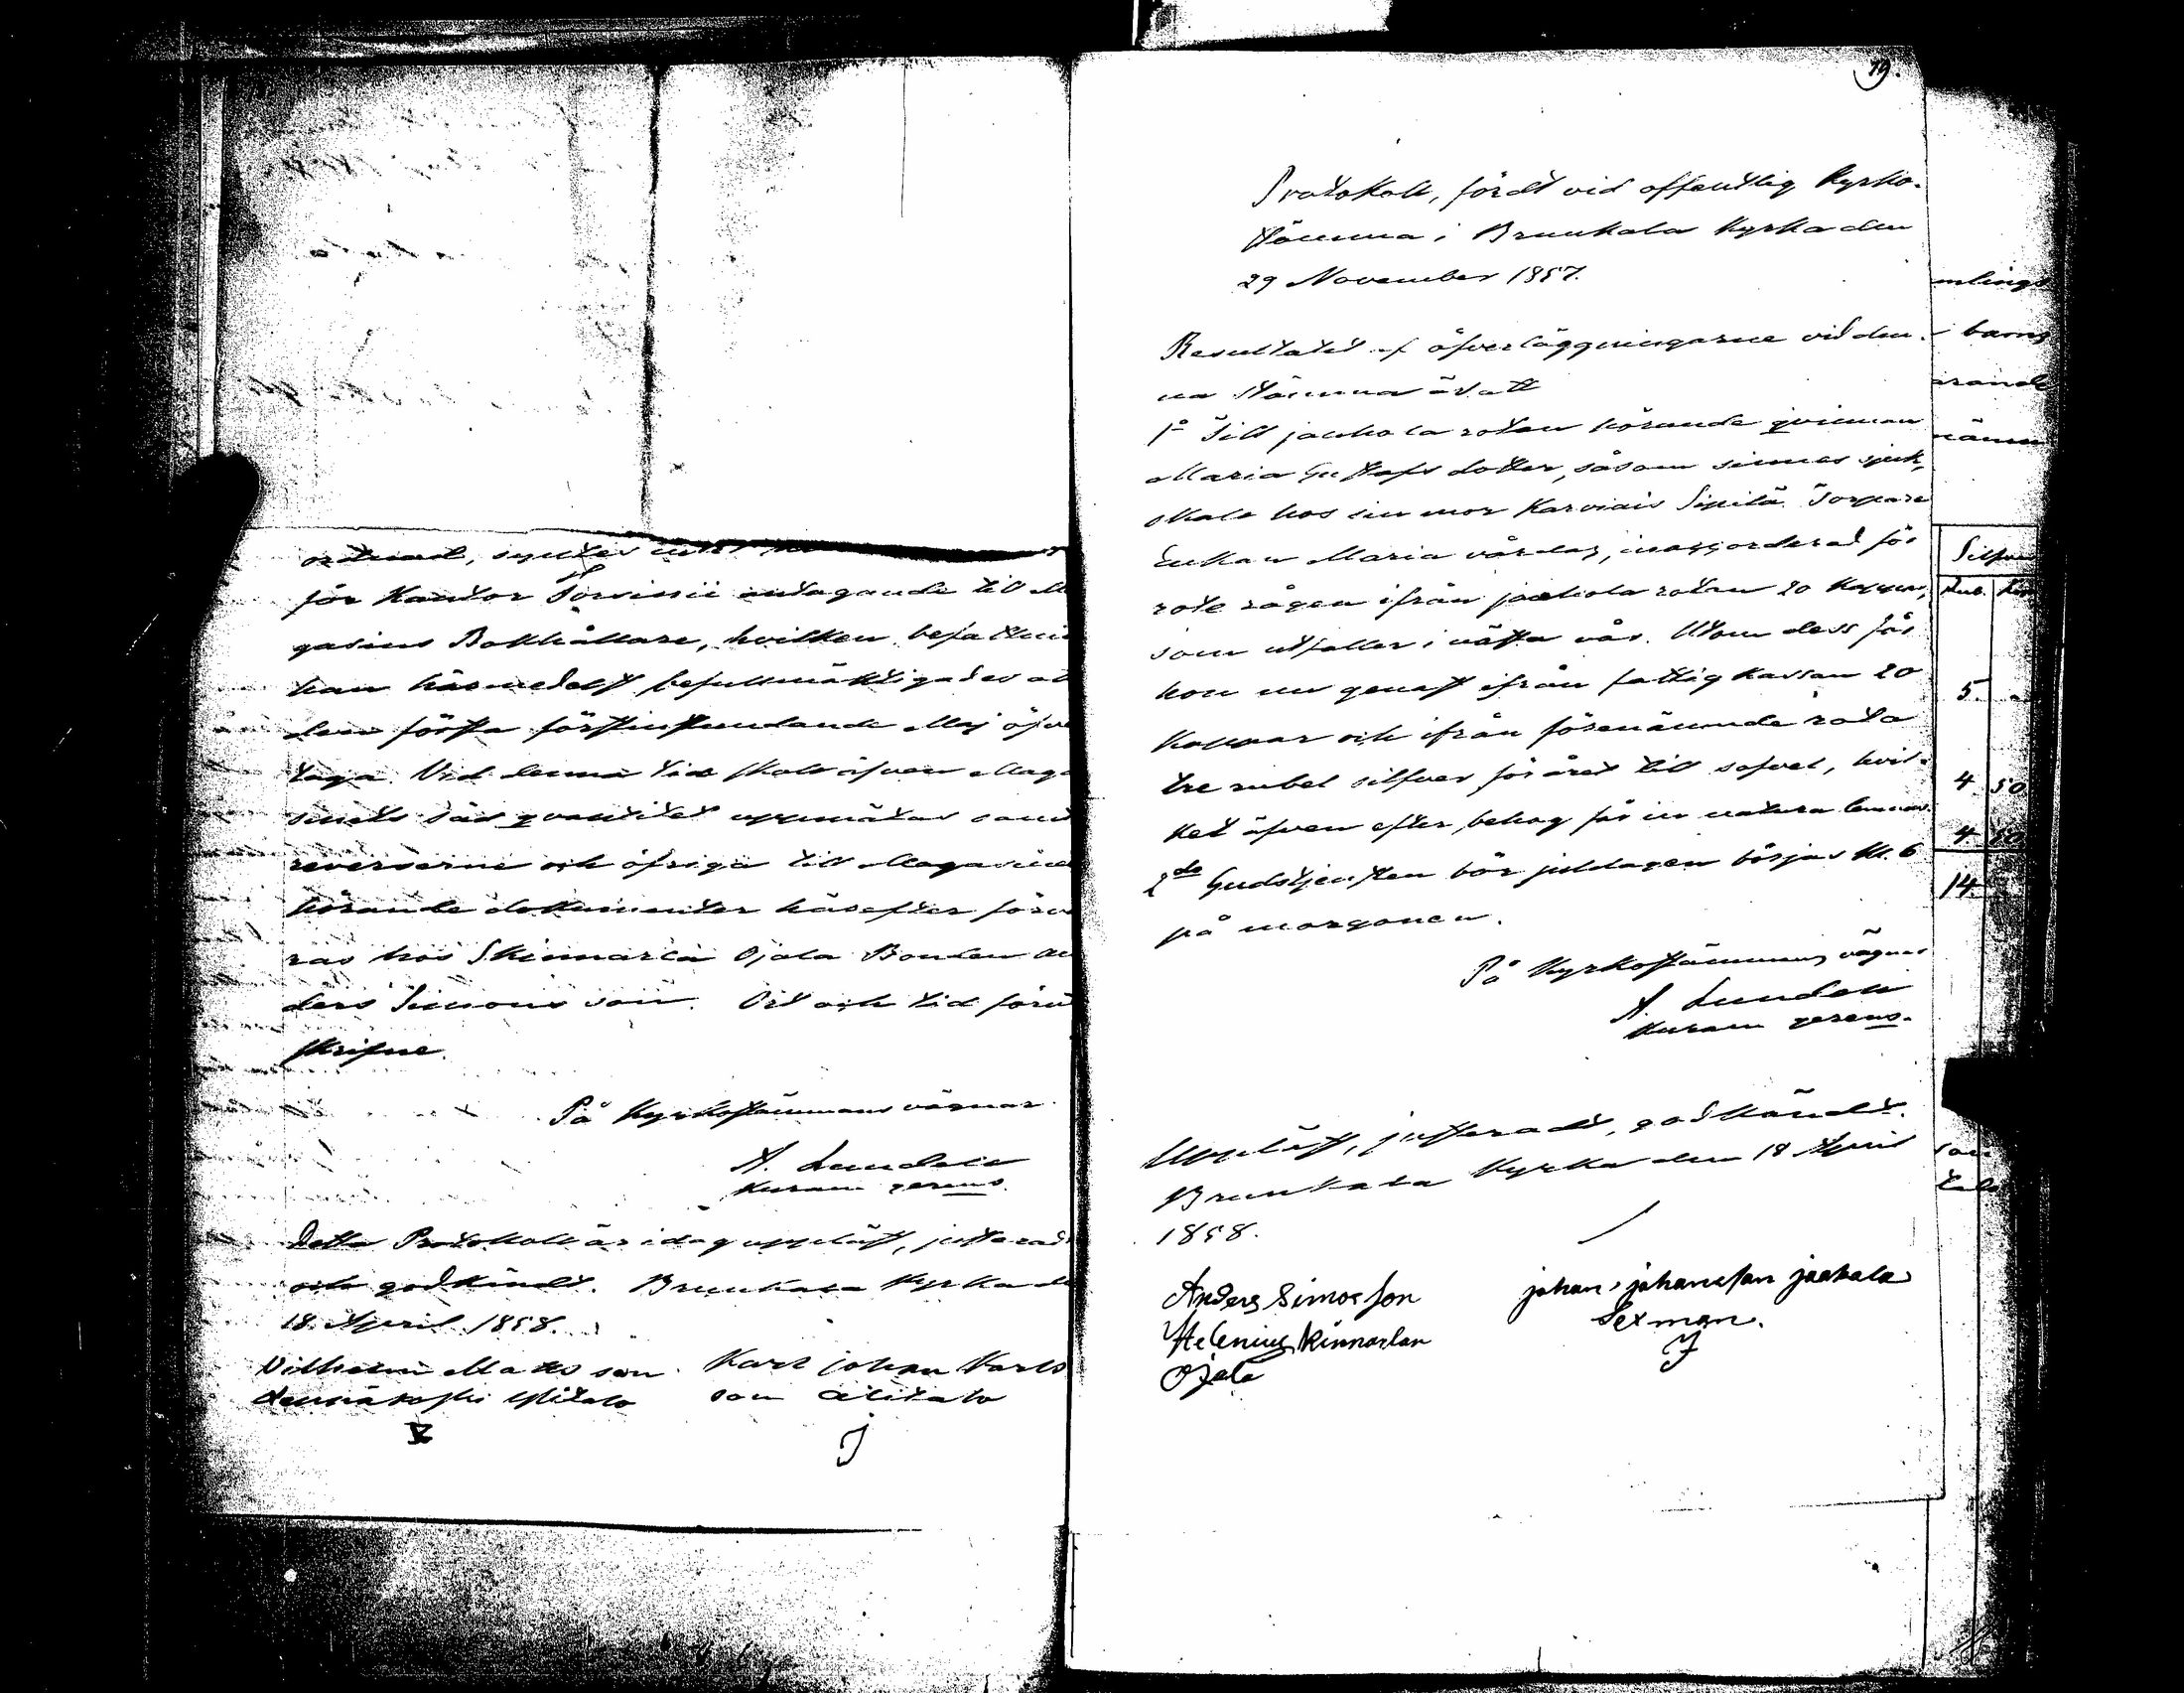 för Kantor Torvinii antagande till Ma
gasins Bokhållare, hvilken befattni
han härmedelst befullmäktigades at
den första förstinstundande Maj öfve
taga. Vid denna tid skall äfven Maga
sinets säd qvantitet uppmätas samt
reverserne och öfriga till Magasinet
hörande dokumenter härefter förva
ras hos Skinnarla Ojala Bonden An
ders Simons son. Ort och tid föru
skrifne.
På Kyrkostämmans vägnar
A. Lundell
Kuram gerens.
Detta Protokoll är idag uppläst, justerad
och godkändt. Brunkala Kyrka de
18 April 1858.
Vilhelm Mats son Karl johan Karls
Ylitalo son Alitalo
19.
Protokoll, fördt vid offentlig Kyrko-
stämma i Brunkala Kyrka den
29 November 1857.
Resultatet af öfverläggningarne vid den-
na stämma är att
1o Till jaakola roten hörande qvinnan
Maria Gustafs dotter, såsom sinnes sjuk,
skall hos sin mor Karviais Sipilä Torpare
Enkan Maria vårdas, inasjorderad för
rote rågen ifrån jaakola rotan 20 kappar,
som utfaller i nästa vår. Utom dess får
hon nu genast ifrån fattig kassan 20
Kappar och ifrån förenämnde rota
tre rubel silfver för året till sofvel, hvil-
ket äfven efter behag får in natura lemnas.
2do Gudstjensten bör juldagen börjas Kl. 6
på morgonen.
På Kyrkostämmans vägnar
A. Lundell
Kuram gerens.
Uppläst, justeradt, godkändt.
Brunkala Kyrka den 18 April
1858.
Anders Simosson johan johansson jaakala
Helenius kinnarlan Sexman.
Ojala
mlings
barns
arande
nämn
Silfver
Rub. Kop
5.
4 50
4 50
14.